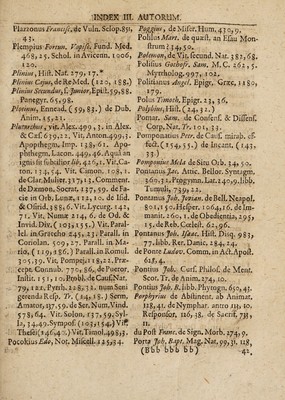 INDEX III. AUTORUM.
Plazzonus Francisc. de Vuln. Sclop. 85,
43.
Plempius Fortun. Vopisc. Fund. Med.
468, 25. Schol. in Avicenn. 1006,
120.
Plinius, Hist. Nat. 279, 17.*
Plinius Cajus, de Re Med. (120, 188.)
Plinius Secundus, s. Junior, Epist. 59, 88.
Panegyr. 65, 98.
Plotinus, Ennead. (59, 83.) de Dub.
Anim. 15, 21.
Plutarchus, vit. Alex. 499, 31. in Alex.
& Cæs. 69, 22. Vit. Anton. 499, 31.
Apophthegm. Imp. 138, 61. Apo-
phthegm. Lacon. 449, 46. Aqua an
ignis sit subsistior 68, 426, 1. Vit. Ca-
ton. 134, 54. Vit. Camon. 108, 1.
de Clar. Mulier. 173, 13. Comment.
de Dæmon. Socrat. 137, 59. de Fa-
cie in Orb. Lunæ, 122, 10. de Isid.
& Osirid. 386, 6. Vit. Lycurg. 142,
71. Vit. Numæ 214, 6, de Od. &
Invid. Div. (103, 155.) Vit. Paral-
lel. in Gracho 245, 23. Parall. in
Coriolan. 509, 27. Parall. in Ma-
rio, (119, 186.) Parall. in Romul.
505, 39. Vit. Pompeji, 118, 22. Præ-
cept. Connub. 770, 86, de Pueror.
Instit. 151, 10. Probl. de Caus. Nat.
79, 122. Pyrrh. 128, 72. num Seni
gerenda Resp. Vr. (14, 18.) Serm.
Amator. 137, 59. de Ser. Num. Vind.
578, 64. Vit. Solon. 137, 59. Syl-
la, 34, 49. Sympos. (103, 154.) Vit.
Thesei (146, 4.) Vit. Timol. 498, 3.
Pocokius Edo, Not. Miscell. 125, 34.
Poggius, de Miser. Hum. 430, 9.
Polisius Mart. de quæst. an Esau Mon-
strum? 34, 50.
Polemon, de Vit. secund. Nat. 387, 68.
Polisius Gothofr. Sam. M. C. 262, 5.
Myrrholog. 997, 102.
Politianus Angel. Epigr. Græc. 1180,
179.
Polus Timoth. Epigr. 23, 36.
Polybius, Hist. (24, 32.)
Pomar. Sam. de Consens. & Dissens.
Corp. Nat. Tr. 101, 33.
Pomponatius Petr. de Caus. mirab. ef-
fect. (254, 35.) de Incant. (141,
33.)
Pomponius Mela de Situ Orb. 34, 50.
Pontanus Jac. Attic. Bellor. Syntagm.
360, 12. Progymn. Lat. 240, 9. libb.
Tumul. 789, 22.
Pontanus Joh. Jovian. de Bell. Neapol.
801, 150. de Hesper. 1064, 16. de Im-
manit. 260, 1. de Obedientia, 295
35. de Reb. Cœlest. 62, 96.
Pontanus Joh. Isaac. Hist. Disq. 983,
77. libb. Rer. Danic. 284, 24.
de Ponte Ludov. Comm. in Act. Apost.
615, 4.
Pontius Joh. Curs. Philos. de Ment.
Scot. Tr. de Anim. 274, 10.
Pontius Job. R. libb. Phymgm. 630, 43.
Porphyrius de Abstinent. ab Animat.
118, 41. de Nymphar. antro 131, 10.
Responsor. 136, 38. de Sacrif. 731,
11.
du Post Franc. de Sign. Morb. 274, 9.
Porta Joh. Bapt. Mag. Nat. 99, 31, 118,
(Bbb bbb bb) 42.